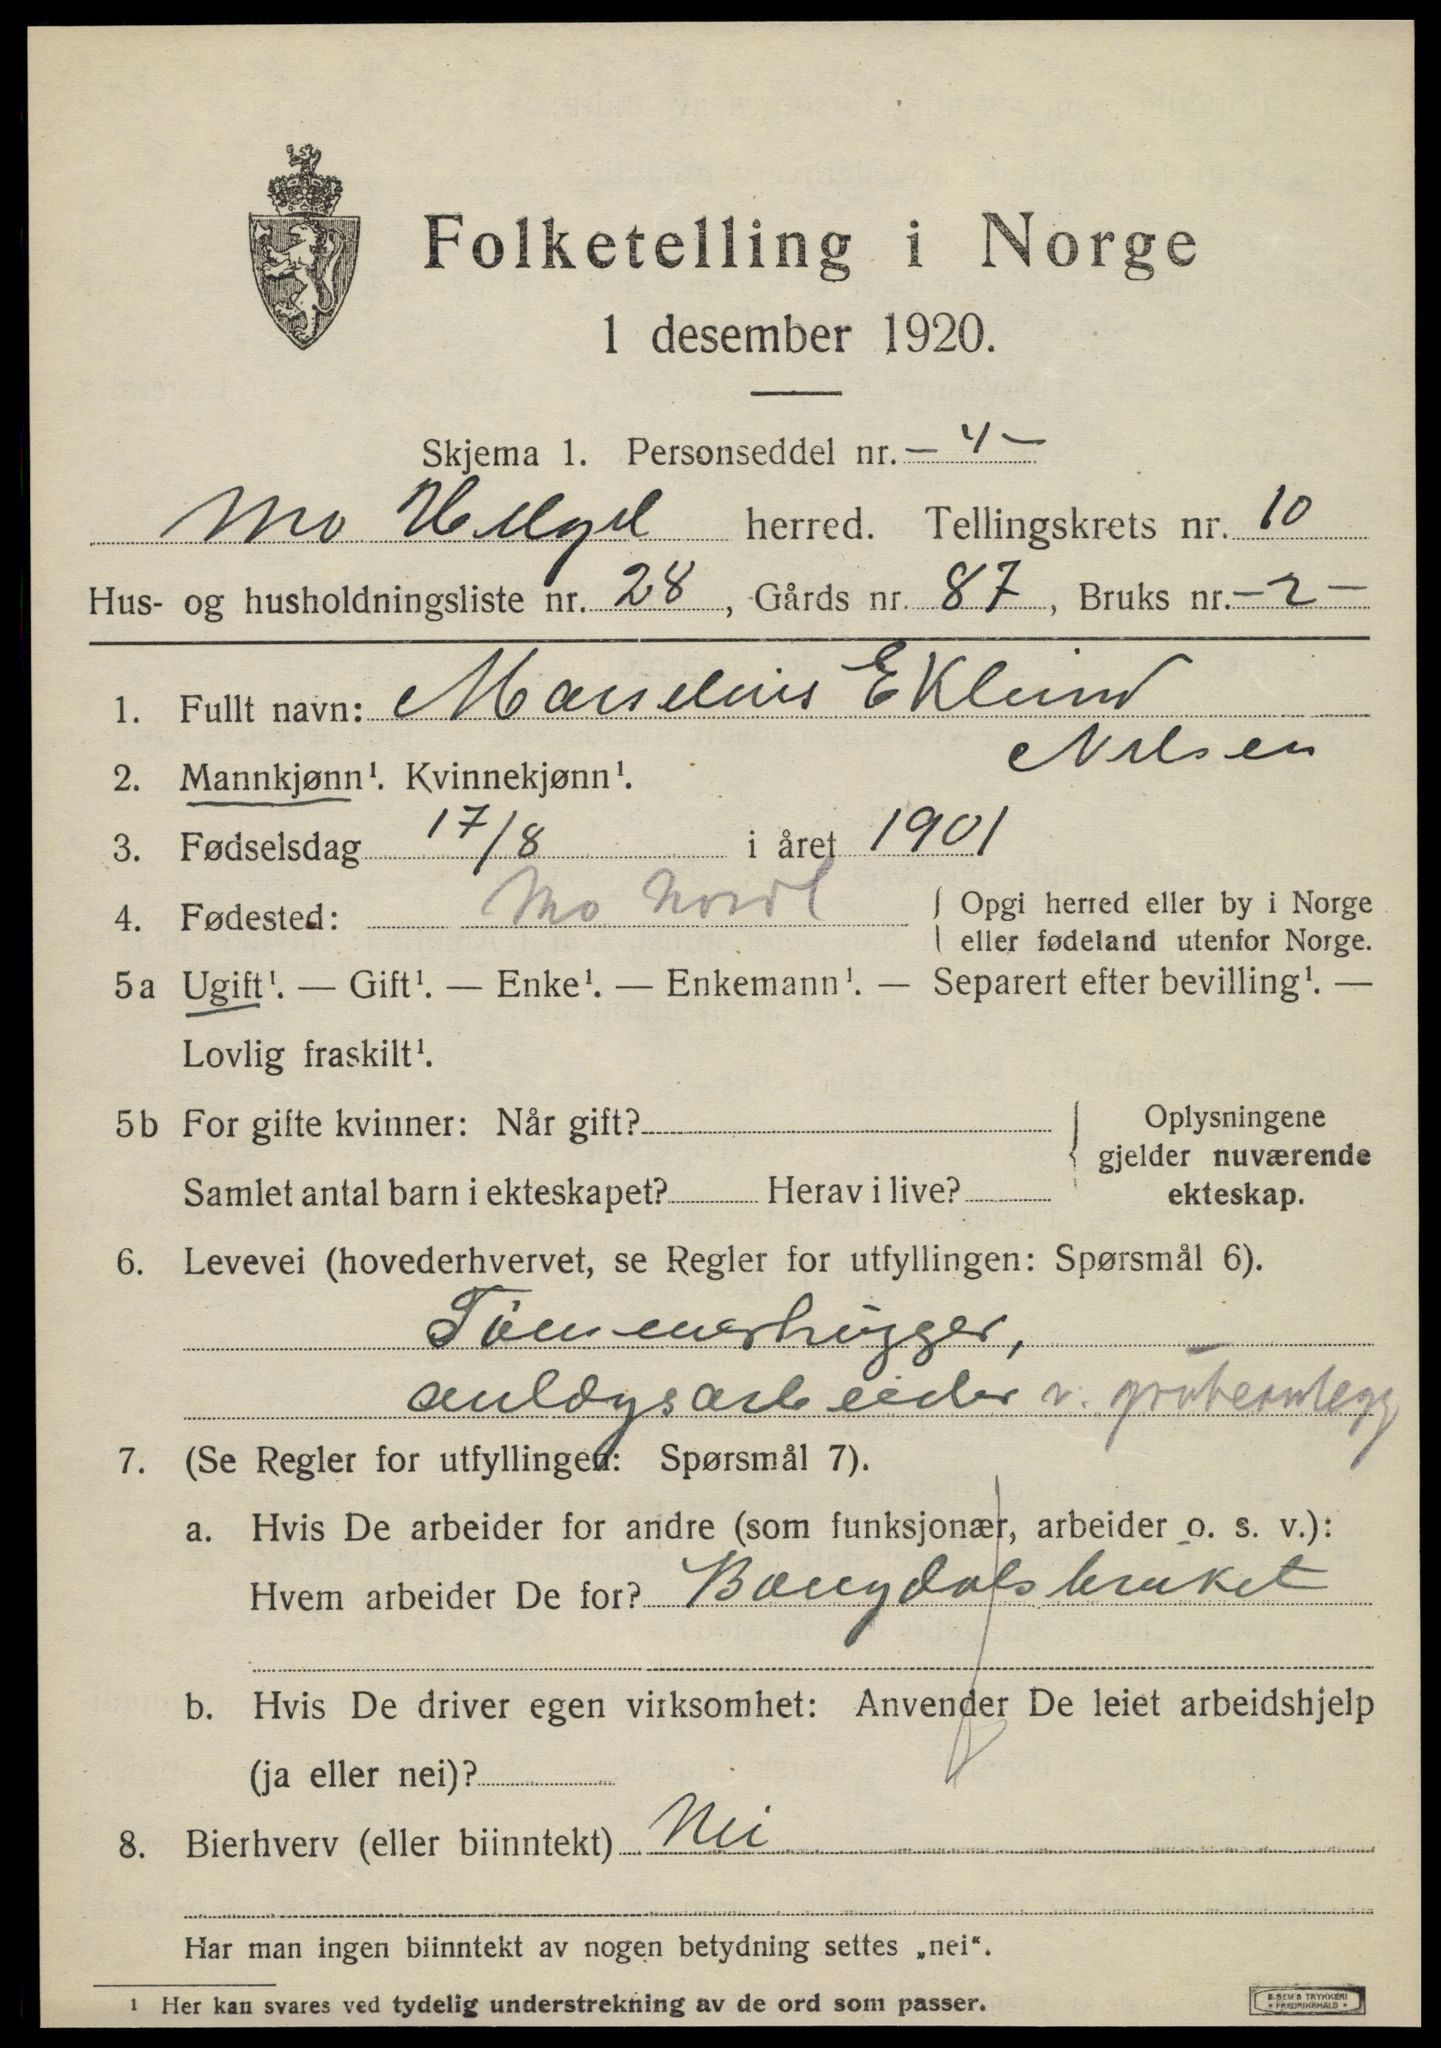 Folketelling i Norge
1 desember 1920.
Skjema 1. Personseddel nr. – 4 –
Mo Helgel herred. Tellingskrets nr. 10
Hus- og husholdningsliste nr. 28, Gårds nr. 87, Bruks nr. – 2 –
1. Fullt navn: Marselius Eklund
Nilsen
2. Mannkjønn¹. Kvinnekjønn¹.
3. Fødselsdag 17/8 i året 1901
4. Fødested: Mo Nordl { Opgi herred eller by i Norge
eller fødeland utenfor Norge.
5a Ugift¹. — Gift¹. — Enke¹. — Enkemann¹. — Separert efter bevilling¹. —
Lovlig fraskilt¹.
5b For gifte kvinner: Når gift? { Oplysningene
gjelder nuværende
Samlet antal barn i ekteskapet? Herav i live? ekteskap.
6. Levevei (hovederhvervet, se Regler for utfyllingen: Spørsmål 6).
Tömmerhugger,
anlægsarbeider v.
7. (Se Regler for utfyllingen: Spørsmål 7).
a. Hvis De arbeider for andre (som funksjonær, arbeider o. s. v.):
Hvem arbeider De for?
b. Hvis De driver egen virksomhet: Anvender De leiet arbeidshjelp
(ja eller nei)?
8. Bierhverv (eller biinntekt) Nei
Har man ingen biinntekt av nogen betydning settes „nei“.
¹ Her kan svares ved tydelig understrekning av de ord som passer.
E. SEM'S TRYKKERI
• FREDRIKSHALD •